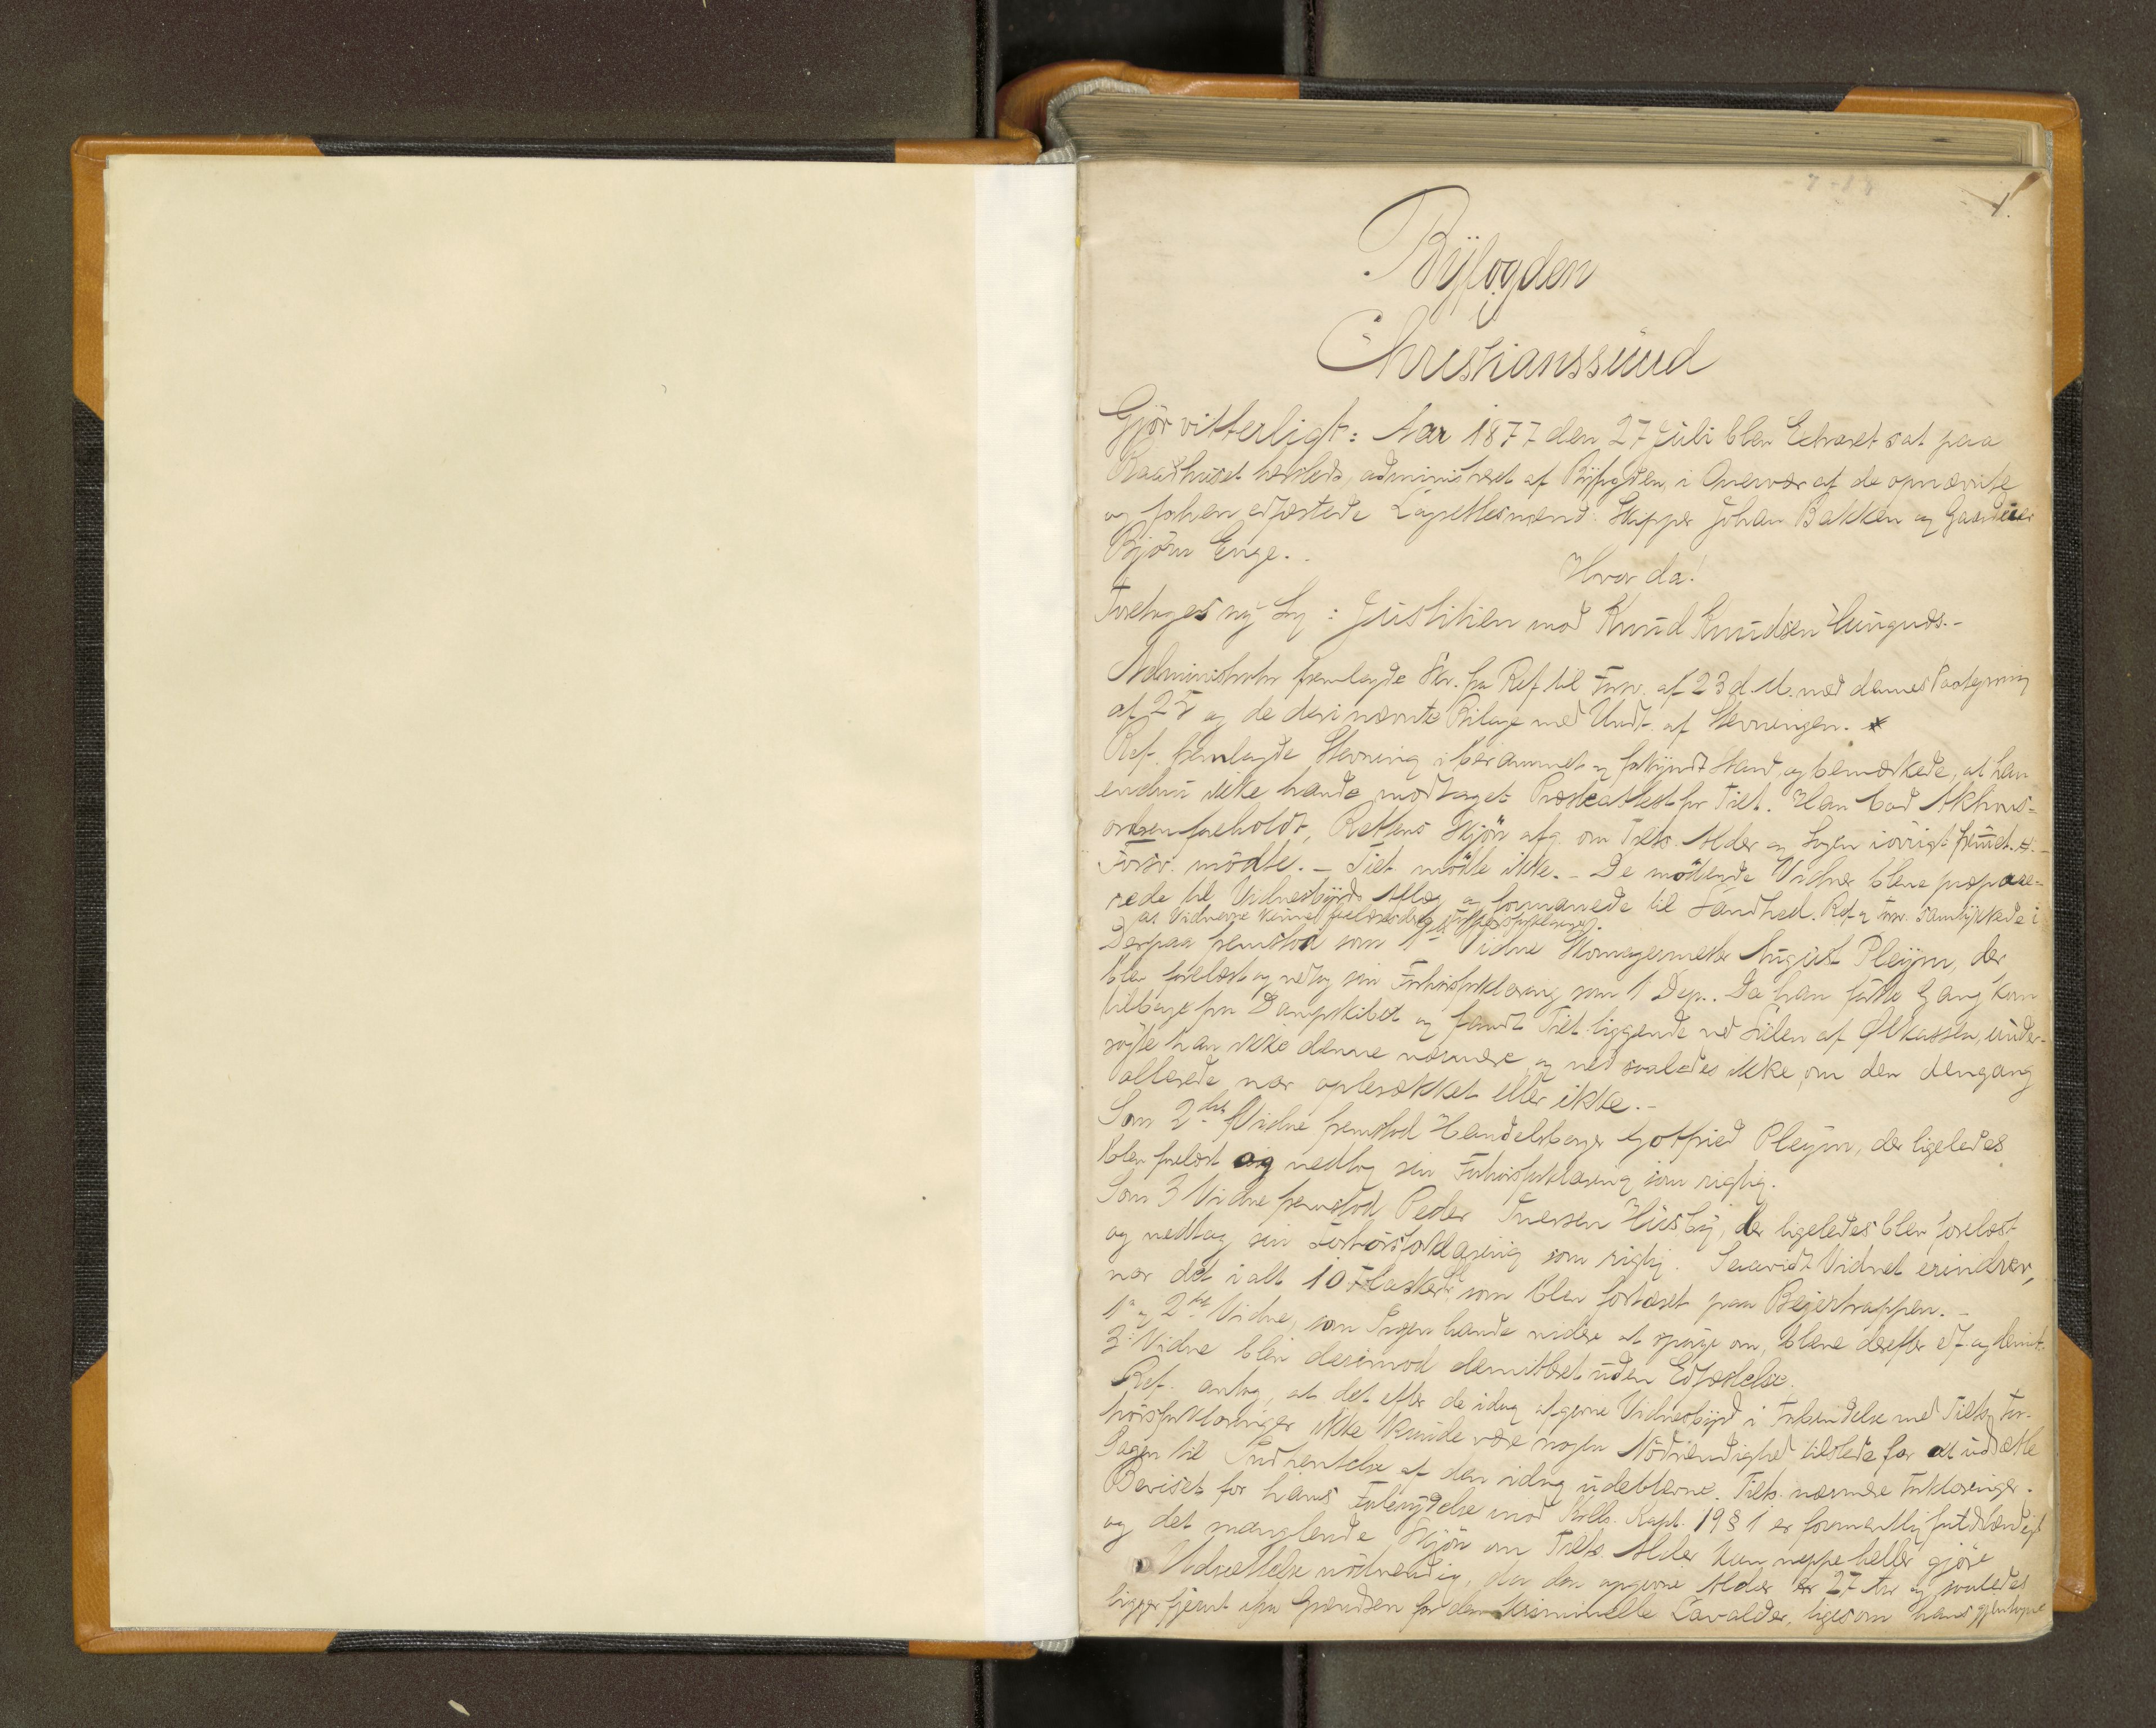 1.
Byfogden
i
Christianssund
Gjör vitterligt: Aar 1877 den 27 Juli blev Extraret sat paa
Raadhuset hersteds, administreret af Byfogden, i Overvær af de opnævnte
og forhen edfæstede Lagrettesmænd: Skipper Johan Bakken og Gaardeier
Björn Enge.
Hvor da!
Foretoges ny Sag: Justitien mod Knud Knudsen Hungnæs.-
Administrator fremlagde Skr. fra Ref til Forsv. af 23 d. M. med dennes Paategning
af 25 og de deri nævnte Bilage med Undt. af Stevningen.
Ref. fremlagde Stevning i berammet og forkyndt Stand, og bemærkede, at han
endnu ikke havde modtaget Præsteattest for Tilt. Han bad Akkus-
ordren foreholdt, Rettens Skjön afg. om Tilts. Alder og Sagen iövrigt fremd.
Forsv. mödte. - Tilt. mödte ikke. - De mödende Vidner bleve præpare-
rede til Vidnesbyrds Aflæg og formanede til Sandhed. Ref og Forsv. samtykkede i
at Vidnerne kunne forelæses deres Forhörsforklaringer.
Derpaa fremstod som 1ste Vidne Skomagermester August Pleym, der
blev forelæst og vedtog sin Forhörsforklaring som 1 Dep.. Da han første Gang kom
tilbage fra Dampskibet og fandt Tilt. liggende ved Siden af Ølkassen, under-
søgte han ikke denne nærmere, og ved saaledes ikke, om den dengang
allerede var opbrækket eller ikke.-
Som 2det Vidne fremstod Handelsborger Gotfried Pleym, der ligeledes
blev forelæst og vedtog sin Forhörsforklaring som rigtig.
Som 3 Vidne fremstod Peder Iversen Husby, der ligeledes blev forelæst
og vedtog sin Forhörsforklaring som rigtig. Saavidt Vidnet erindrer,
var det i alt 10 Flasker, som blev fortæret paa Beyertrappen. -
1ste og 2det Vidne, som Ingen havde videre at spørge om, bleve derefter edf. og demit.
3 Vidne blev derimod demitteret uden Edfæstelse.
Ref. antog, at det efter de idag afgivne Vidnesbyrd i Forbindelse med Tilts. For-
hörsforklaringer ikke kunde være nogen Nödvendighed tilstede for at udsætte
Sagen til Indhentelse af den idag udeblevne Tilts. nærmere Forklaringer.
Beviset for hans Forbrydelse mod Krlls. Kapt. 19 § 1 er formentlig fuldstændigt
og det manglende Skjön om Tilts. Alder kan neppe heller gjöre
Udsættelse nödvendig, da den opgivne Alder er 27 Aar og saaledes
ligger fjernt ifra Grændsen for den kriminelle Lavalder, ligesom hans gjentagne